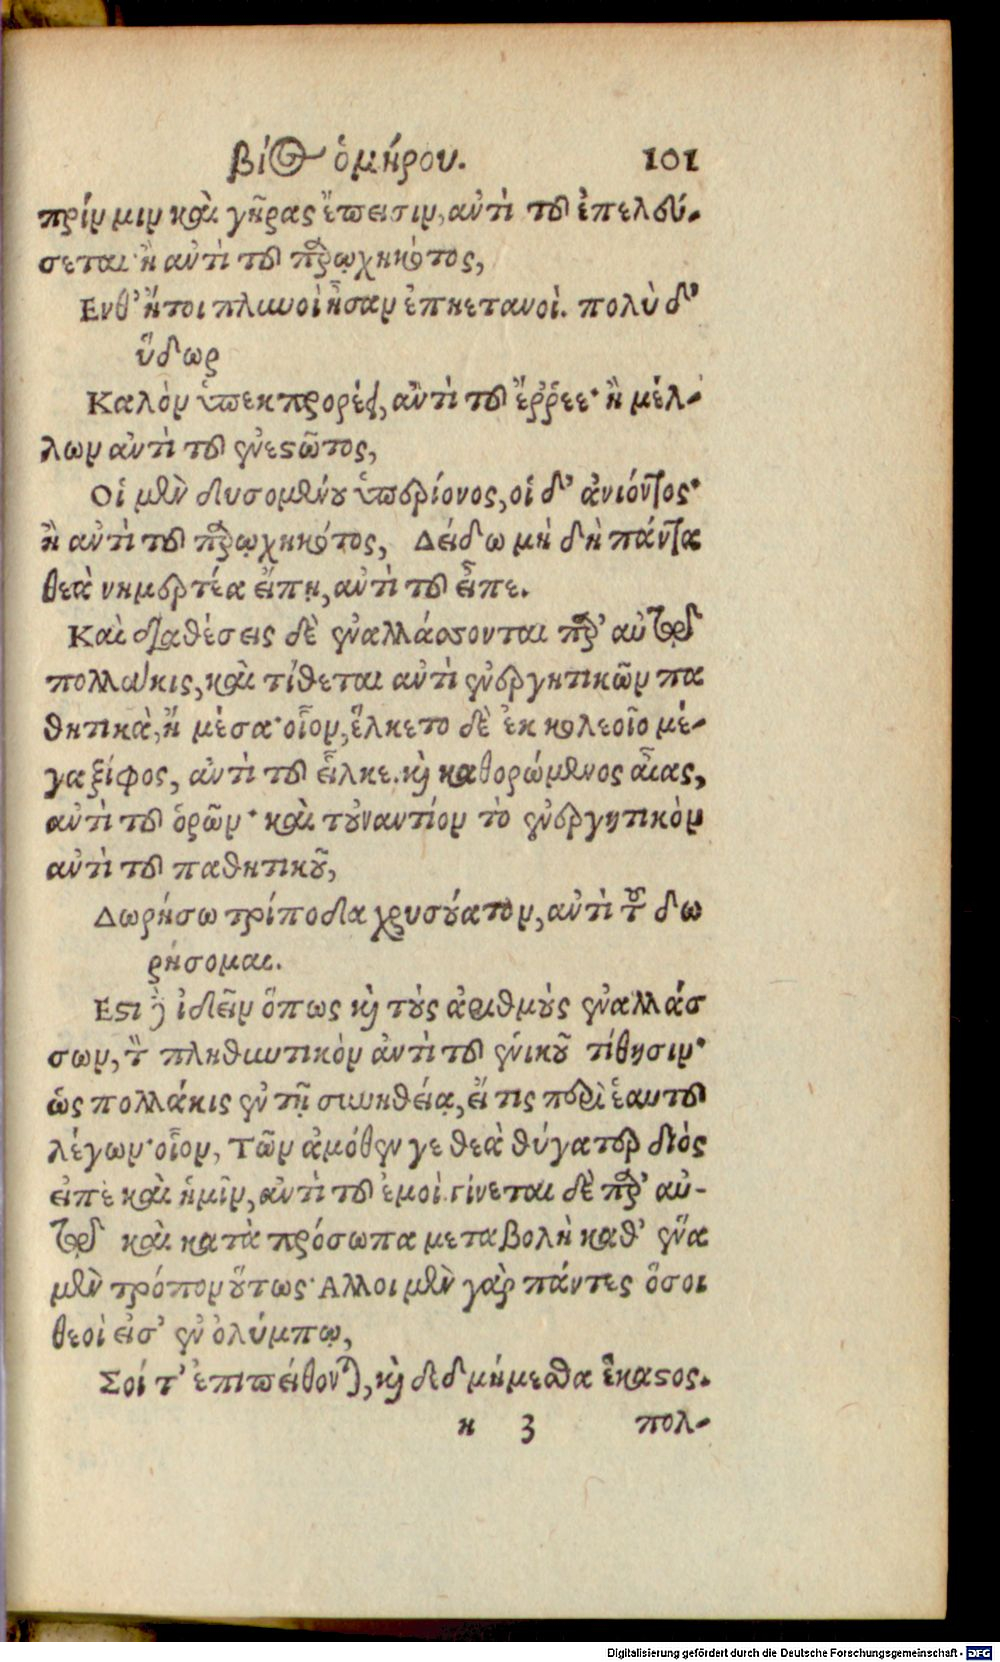 βίος ὁμήρου. 101
πρίν μιν καὶ γῆρας ἔπεισιν, αὐτὶ τοῦ ἐπελεύ-
σεται· ἢ αὐτὶ τοῦ παρῳχηκότος,
Ενθ' ἤτοι πλυνοὶ ἦσαν ἐπηετανοὶ. πολὺ δ'
ὕδωρ
Καλὸν ὑπεκπρορέει, αὐτὶ τοῦ ἔῤῥεε· ἢ μέλ-
λων αὐτὶ τοῦ ἐνεστῶτος,
Οἱ μὲν δυσομένου ὑπερίονος, οἱ δ' ἀνιόντος·
ἢ αὐτὶ τοῦ παρῳχηκότος, Δείδω μὴ δὴ πάντα
θεὰ νημερτέα εἴπῃ, αὐτὶ τοῦ εἶπε.
Καὶ διαθέσεις δὲ ἐναλλάσσονται παρ' αὐτῷ
πολλάκις, καὶ τίθεται αὐτὶ ἐνεργητικῶν πα
θητικὰ, ἢ μέσα· οἷον, ἕλκετο δὲ ἐκ κολεοῖο μέ-
γα ξίφος, ἀντὶ τοῦ εἷλκε. καὶ καθορώμενος αἶας,
αὐτὶ τοῦ ὁρῶν· καὶ τοὐναντίον τὸ ἐνεργητικὸν
αὐτὶ τοῦ παθητικοῦ,
Δωρήσω τρίποδα χρυσούατον, αὐτὶ τοῦ δω
ρήσομαι.
Εστι δὲ ἰδεῖν ὅπως καὶ τοὺς ἀριθμοὺς ἐναλλάσ
σων, τὸ πληθυντικὸν ἀντὶ τοῦ ἑνικοῦ τίθησιν·
ὡς πολλάκις ἐν τῇ συνηθείᾳ, εἴ τις περὶ ἑαυτοῦ
λέγων· οἷον, Τῶν ἁμόθεν γε θεὰ θύγατερ διὸς
εἰπὲ καὶ ἡμῖν, ἀντὶ τοῦ ἐμοὶ. γίνεται δὲ παρ' αὐ-
τῷ καὶ κατὰ πρόσωπα μεταβολὴ καθ' ἕνα
μὲν τρόπον οὕτως· Αλλοι μὲν γὰρ πάντες ὅσοι
θεοὶ εἰσ' ἐν ὀλύμπῳ,
Σοί τ' ἐπιπείθονται, καὶ δεδμήμεσθα ἕκαστος.
η 3 πολ-
Digitalisierung gefördert durch die Deutsche Forschungsgemeinschaft - DFG